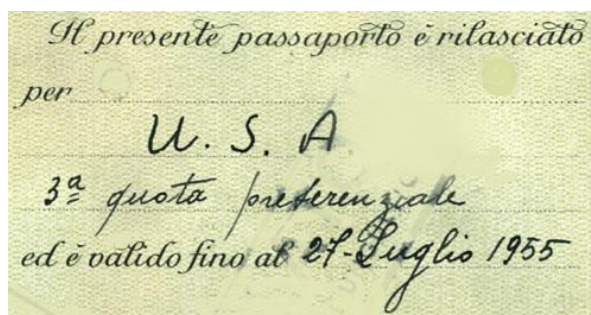 Il presente passaporto è rilasciato
per
U. S. A
3ª quota preferenziale
ed è valido fino al 27-Luglio 1955